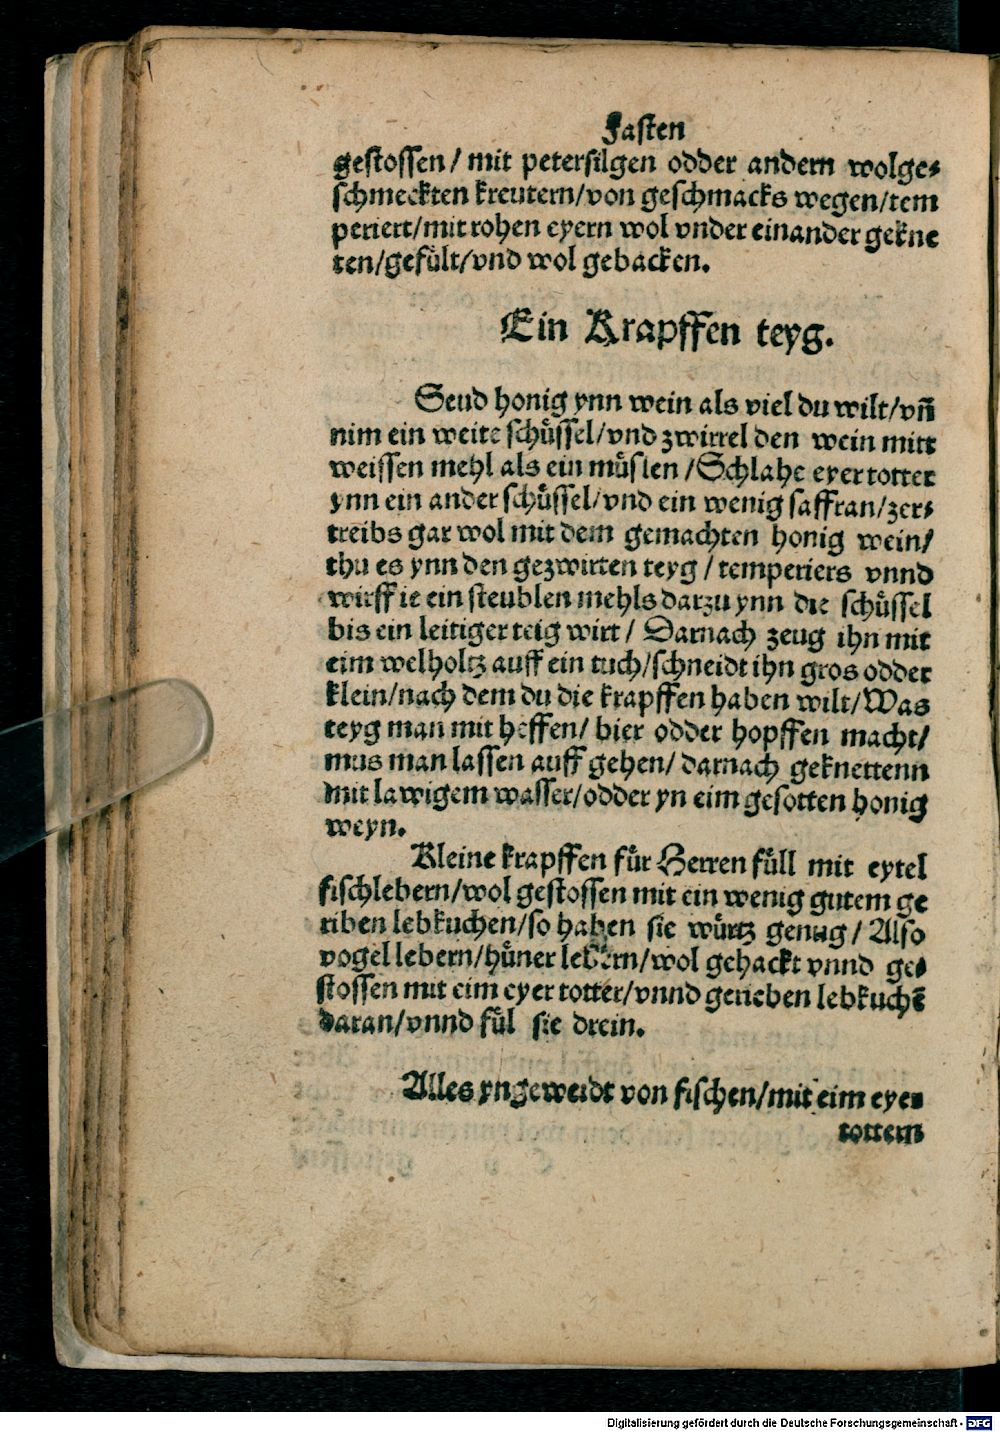 Fasten
gestossen/ mit petersilgen odder andern wolge⸗
schmeckten kreutern/von geschmacks wegen/tem
periert/mit rohen eyern wol vnder einander gekne
ten/gefült/vnd wol gebacken.
Ein Krapffen teyg.
Seud honig ynn wein als viel du wilt/vñ
nim ein weite schüssel/vnd zwirrel den wein mitt
weissen mehl als ein müslen /Schlahe eyer totter
ynn ein ander schüssel/vnd ein wenig saffran/zer⸗
treibs gar wol mit dem gemachten honig wein/
thu es ynn den gezwirten teyg / temperiers vnnd
wirff ie ein steublen mehls darzu ynn die schüssel
bis ein leitiger teig wirt/ Darnach zeug ihn mit
eim welholtz auff ein tuch/schneidt ihn gros odder
klein/nach dem du die krapffen haben wilt/Was
teyg man mit heffen/ bier odder hopffen macht/
mus man lassen auff gehen/ darnach geknettenn
mit lawigem wasser/odder yn eim gesotten honig
weyn.
Kleine krapffen für Herren füll mit eytel
fischlebern/wol gestossen mit ein wenig gutem ge
riben lebkuchen/so haben sie würtz genug/ Also
vogel lebern/hüner lebern/wol gehackt vnnd ge⸗
stossen mit eim eyer totter/vnnd gerieben lebkuchē
daran/vnnd fül sie drein.
Alles yngeweidt von fischen/mit eim eyer
tottern
Digitalisierung gefördert durch die Deutsche Forschungsgemeinschaft - DFG